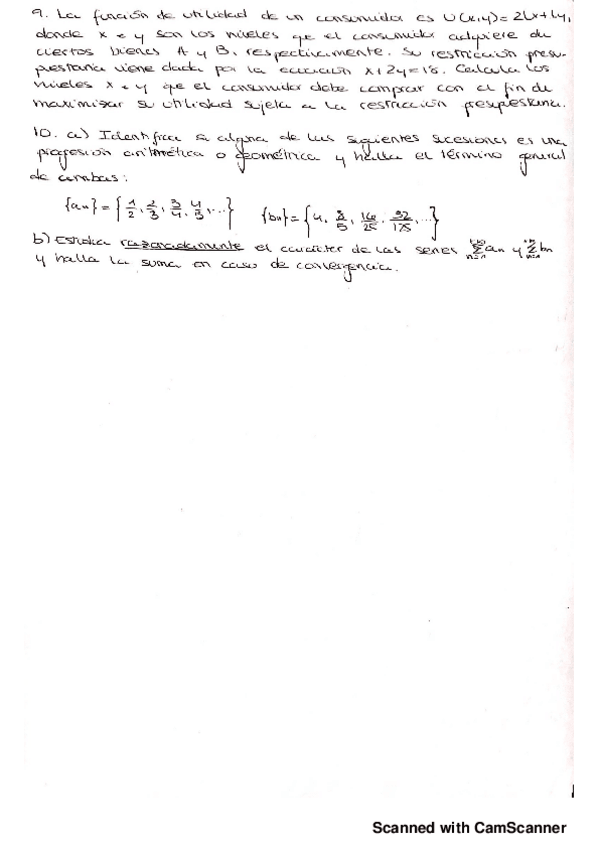 9. La función de utilidad de un consumidor es U(x,y)= 2Lx+Ly,
donde x e y son los niveles que el consumidor adquiere de
ciertos bienes A y B, respectivamente. Su restricción presu-
puestaria viene dada por la ecuación x+2y=18. Calcula los
niveles x e y que el consumidor debe comprar con el fin de
maximizar su utilidad sujeta a la restricción presupuestaria.
10. a) Identifica si alguna de las siguientes sucesiones es una
progresión aritmética o geométrica y halla el término general
de ambas:
{an} = {1/2, 2/3, 3/4, 4/5, ...} {bn} = {4, 8/5, 16/25, 32/125, ...}
b) Estudia razonadamente el carácter de las series Σan y Σbn
y halla la suma en caso de convergencia.
Scanned with CamScanner